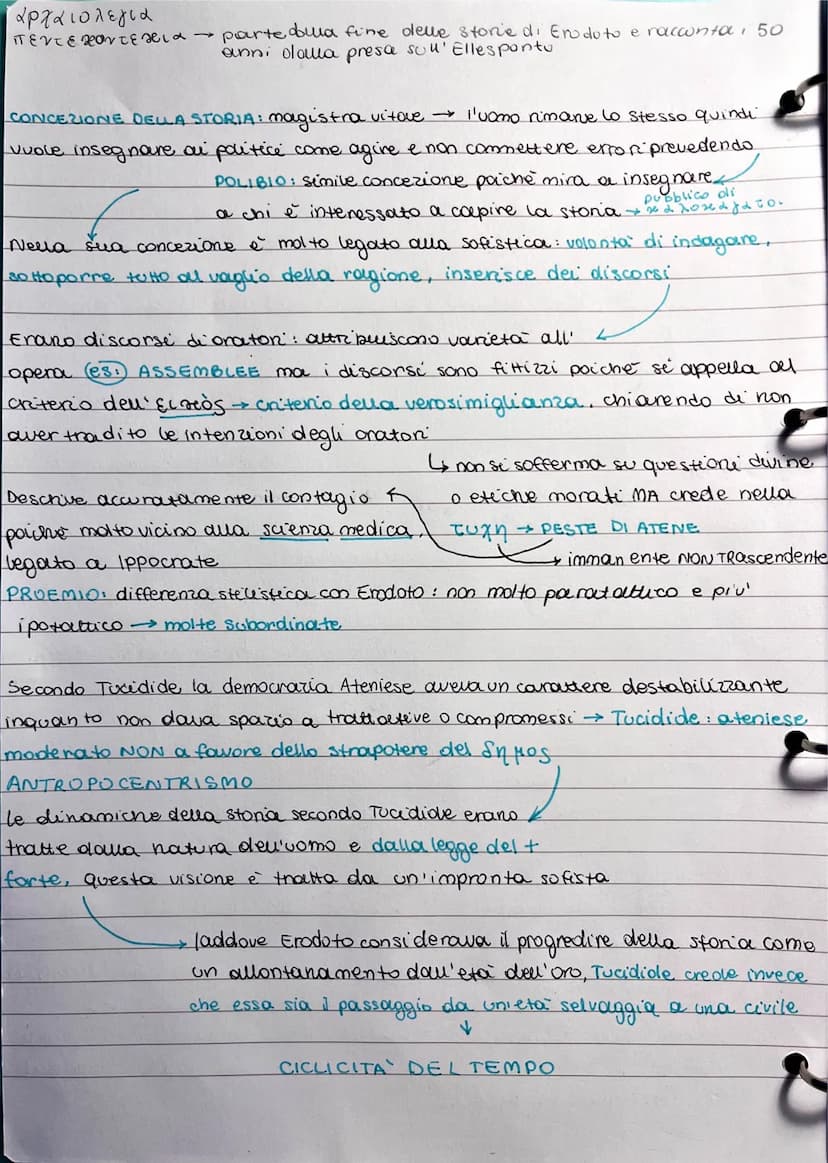 αρχαιολεγια
πεντεκοντεκεια → parte dalla fine delle storie di Erodoto e racconta i 50
anni dalla presa sull'Ellesponto
CONCEZIONE DELLA STORIA: magistra vitae → l'uomo rimane lo stesso quindi
vuole insegnare ai politici come agire e non commettere errori prevedendo
POLIBIO: simile concezione poiché mira a insegnare
a chi è interessato a capire la storia → pubblico di
Nella sua concezione è molto legato alla sofistica: volontà di indagare,
sottoporre tutto al vaglio della ragione, inserisce dei discorsi
Erano discorsi di oratori: attribuiscono varietà all'
opera (es:) ASSEMBLEE ma i discorsi sono fittizzi poiché si appella al
criterio dell'εικπὸς → criterio della verosimiglianza, chiarendo di non
aver tradito le intenzioni degli oratori
↳ non si sofferma su questioni divine
Descrive accuratamente il contagio o etiche morali MA crede nella
poiché molto vicino alla scienza medica, τυχη → PESTE DI ATENE
legato a Ippocrate → immanente NON TRascendente
PROEMIO: differenza stilistica con Erodoto: non molto paratattico e piu'
ipotattico → molte subordinate
Secondo Tucidide, la democrazia Ateniese aveva un carattere destabilizzante
inquanto non dava spazio a trattative o compromessi → Tucidide: ateniese
moderato NON a favore dello strapotere del δημος
ANTROPOCENTRISMO
le dinamiche della storia secondo Tucidide erano
tratte dalla natura dell'uomo e dalla legge del +
forte, questa visione è tratta da un'impronta sofista
→ laddove Erodoto considerava il progredire della storia come
un allontanamento dall'età dell'oro, Tucidide crede invece
che essa sia il passaggio da un'età selvaggia a una civile
↓
CICLICITA' DEL TEMPO